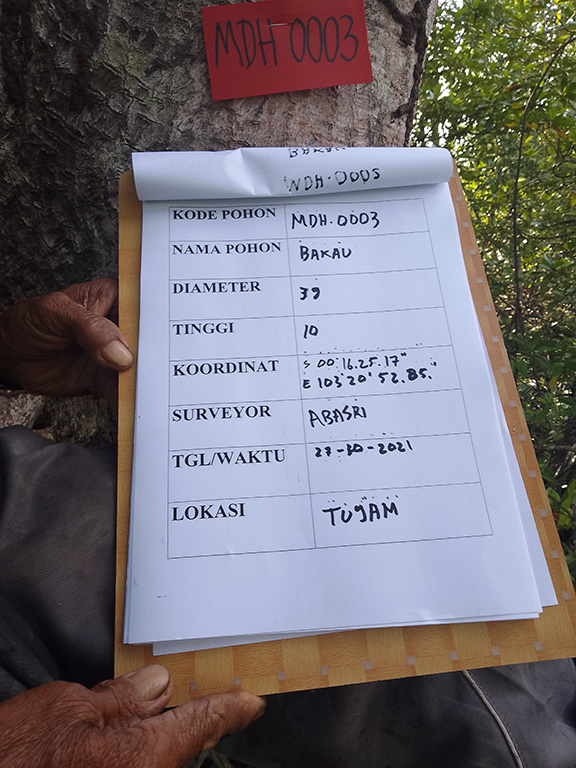 MDH 0003
BAKAU
WDH.0005
KODE POHON MDH.0003
NAMA POHON BAKAU
DIAMETER 39
TINGGI 10
KOORDINAT S 00°16.25.17"
E 103°20'52.85."
SURVEYOR ABASRI
TGL/WAKTU 27-10-2021
LOKASI TUJAM